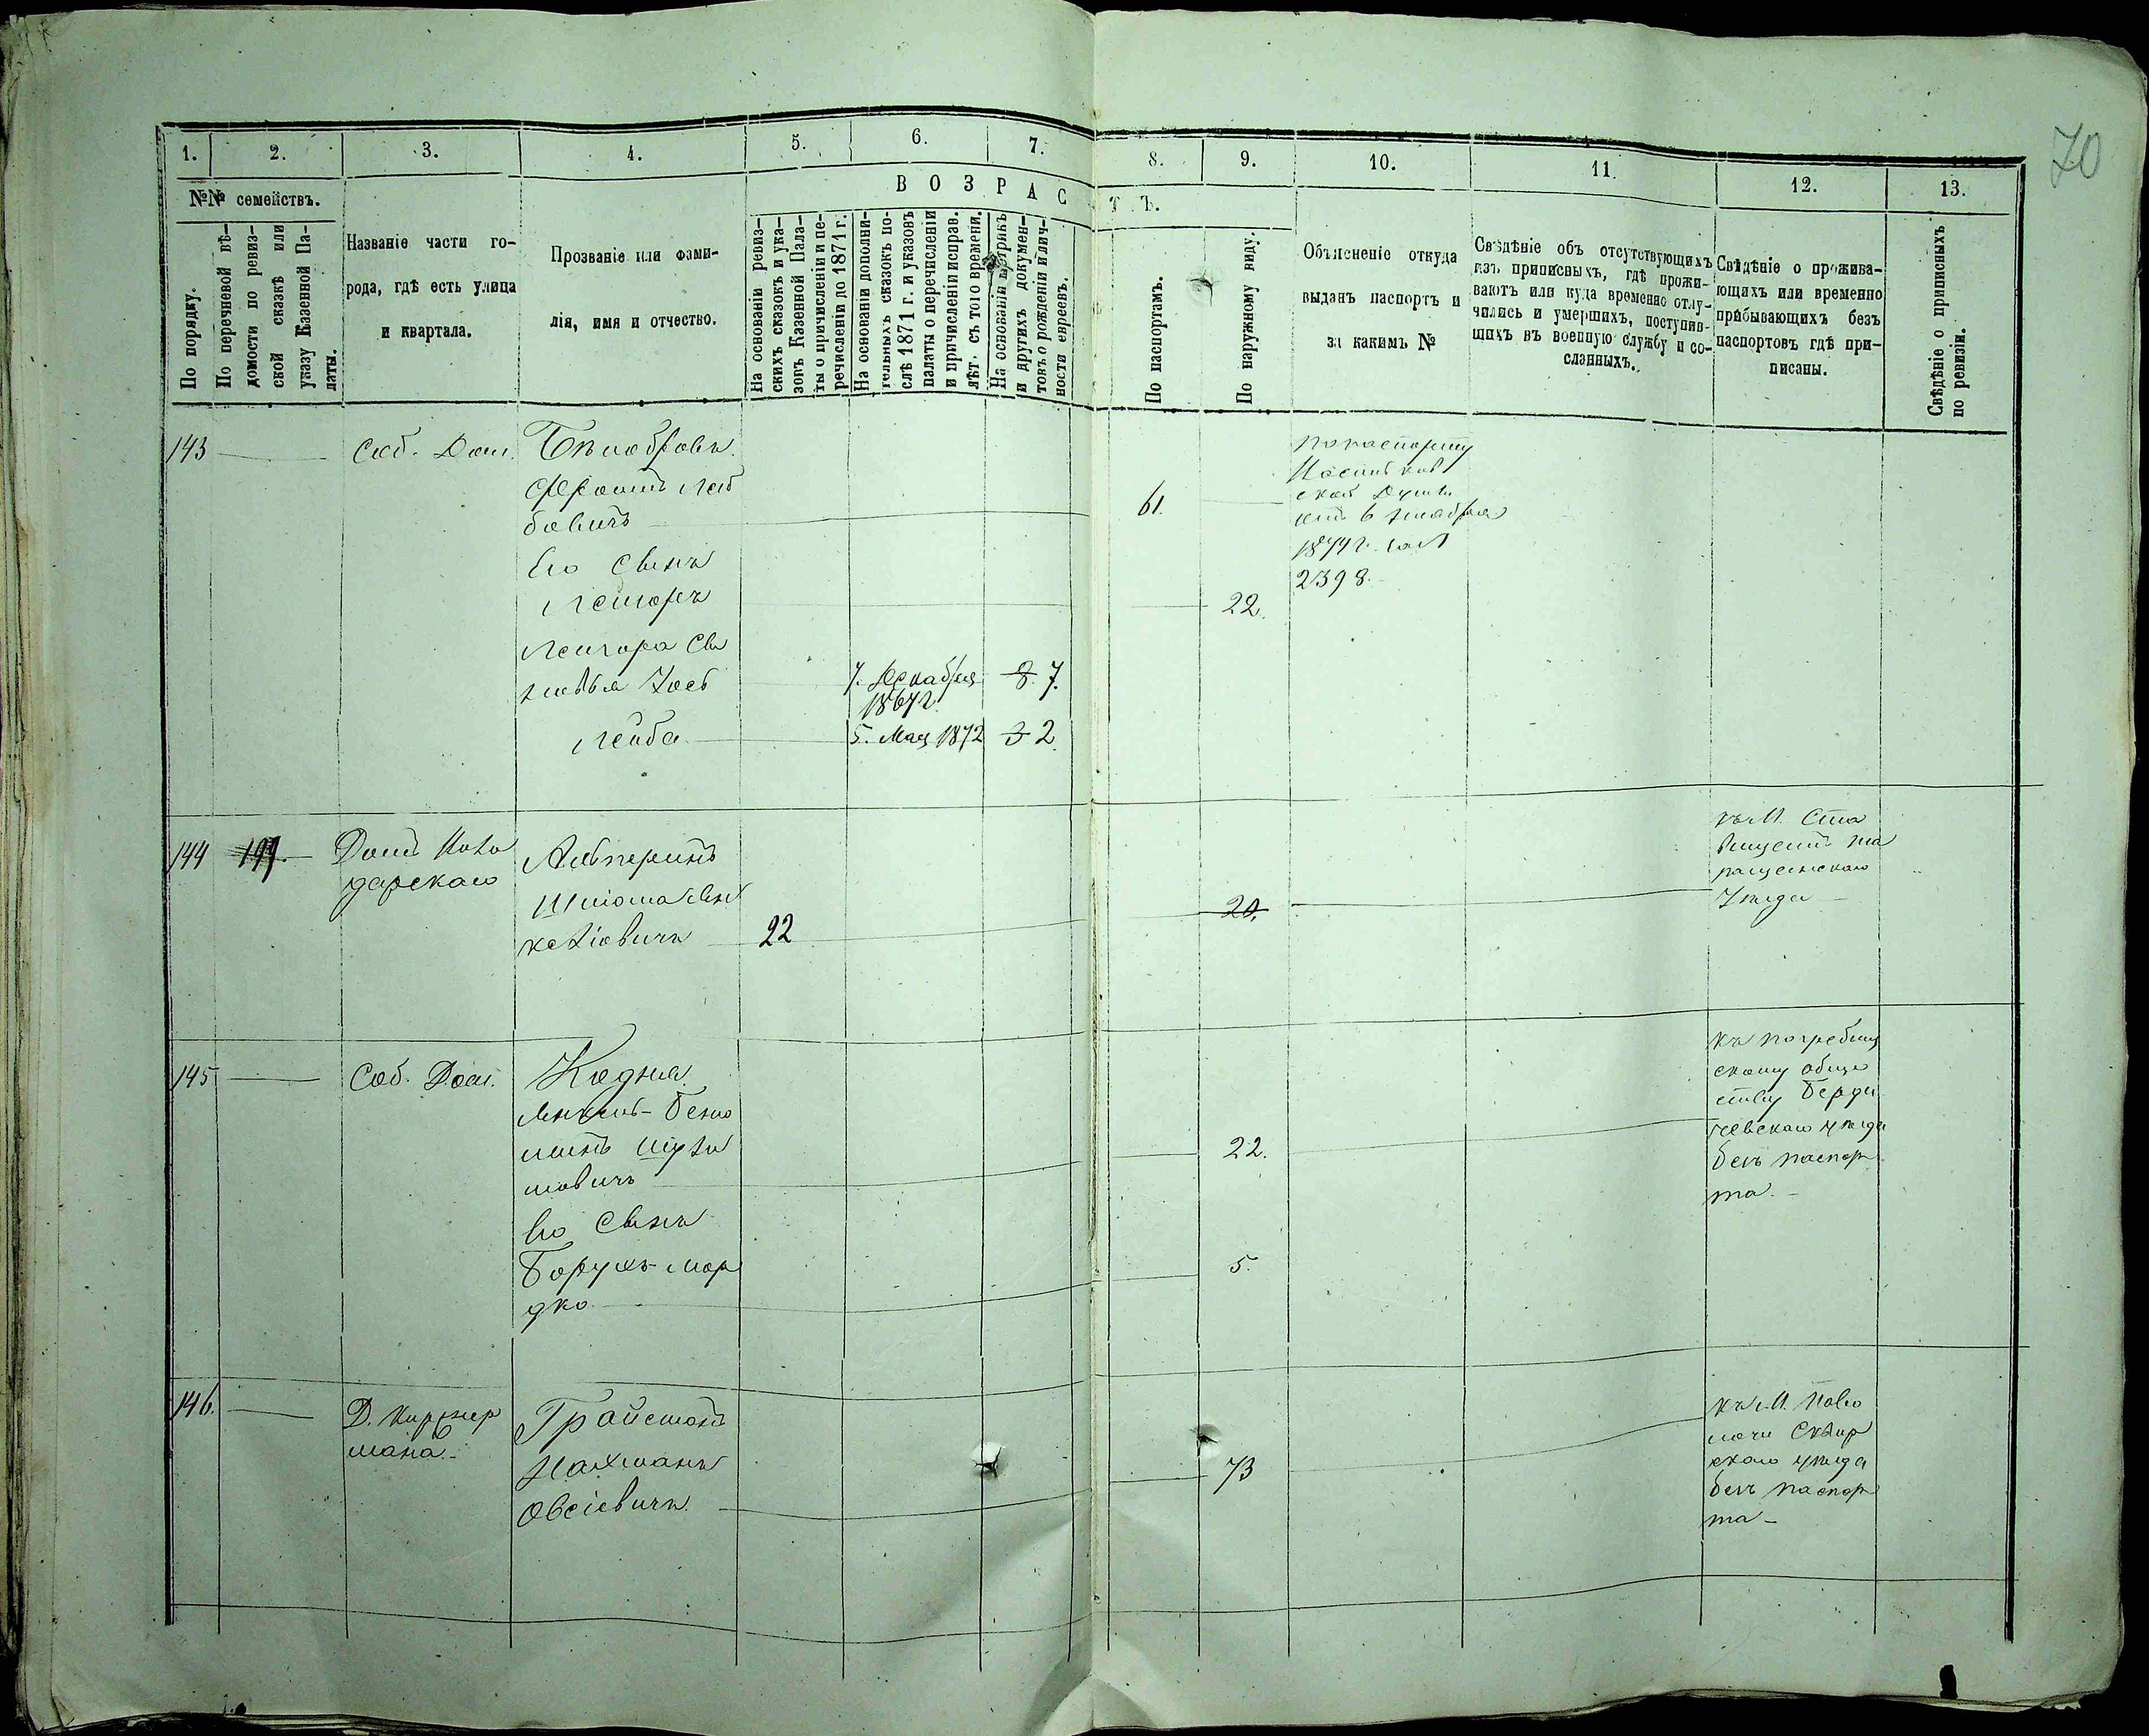 70
1. 2. 3. 4. 5. 6. 7. 8. 9. 10. 11. 12. 13.
№№ семействъ.
По порядку.
По перечневой вѣ-
домости по ревиз-
ской сказкѣ или
указу Казенной Па-
латы.
Названіе части го-
рода, гдѣ есть улица
и квартала.
Прозваніе или фами-
лія, имя и отчество.
ВОЗРАСТЪ.
На основаніи ревиз-
скихъ сказокъ и ука-
зовъ Казенной Пала-
ты о причисленіи и пе-
речисленіи до 1871 г.
На основаніи дополни-
тельныхъ сказокъ по-
слѣ 1871 г. и указовъ
палаты о перечисленіи
и причисленіи исправ.
лѣт. съ того времени.
На основаніи метрикъ
и другихъ докумен-
товъ о рожденіи и лич-
ности евреевъ.
По паспортамъ.
По наружному виду.
Объясненіе откуда
выданъ паспортъ и
за какимъ №
Свѣдѣніе объ отсутствующихъ
изъ приписныхъ, гдѣ прожи-
ваютъ или куда временно отлу-
чились и умершихъ, поступив-
шихъ въ военную службу и со-
сланныхъ.
Свѣдѣніе о прожива-
ющихъ или временно
прибывающихъ безъ
паспортовъ гдѣ при-
писаны.
Свѣдѣніе о приписныхъ
по ревизіи.
143
Соб. Дом.
Лей
бовичъ
Его Сынъ
61.
22.
По паспорту
1874 г. за №
2398.
Сы
новья Іось
7. Декабря
1867 г.
8. 7.
Лейба
5. Мая 1872
3 2.
144 199.
Домъ
Альперинъ
22
20.
къ М. Ста
вищамъ Та
ращанскаго
Уѣзда
145
Соб. Дом.
мовичъ
22.
Его Сынъ
Борухъ-Мор
дко
5.
къ Погребищ
скому обще
ству Берди
чевскаго уѣзда
безъ паспор
та.
146.
Д.
мана.
Нахманъ
Овсіевичъ
73
къ М. Паво
лочи Сквир
скаго уѣзда
безъ паспор
та